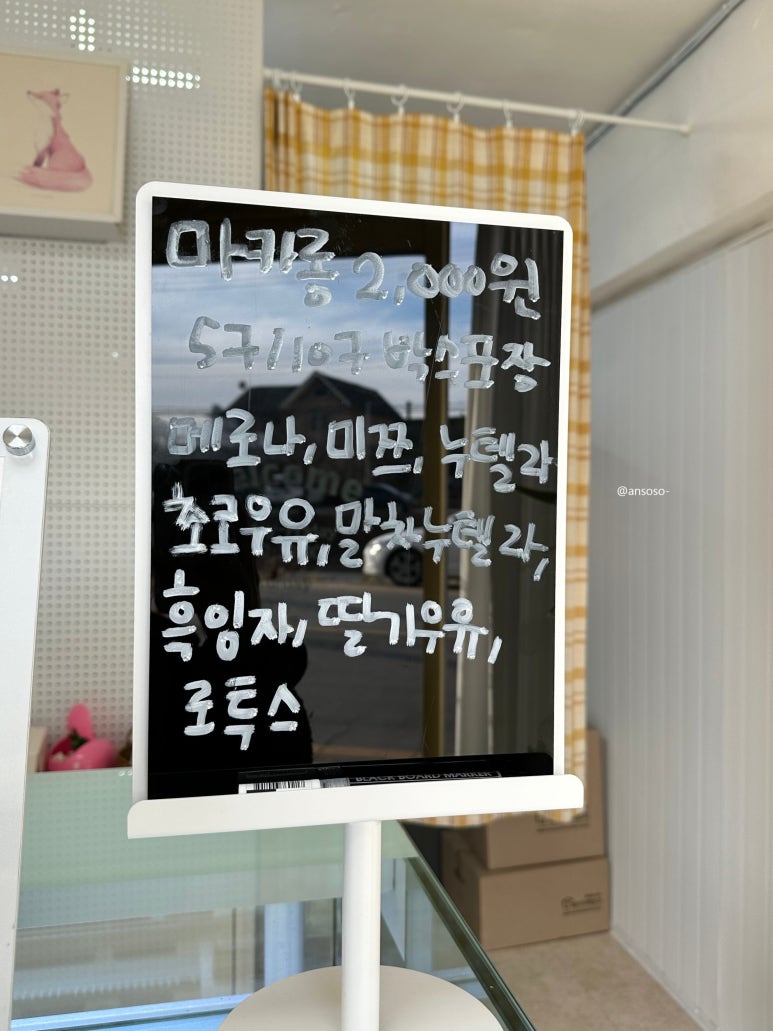 마카롱 2,000원
5구/10구 박스포장
메로나, 미쯔, 누텔라
초로우유, 말차누텔라,
흑임자, 딸기우유,
로투스
@ansoso-
BLACK BOARD MARKER